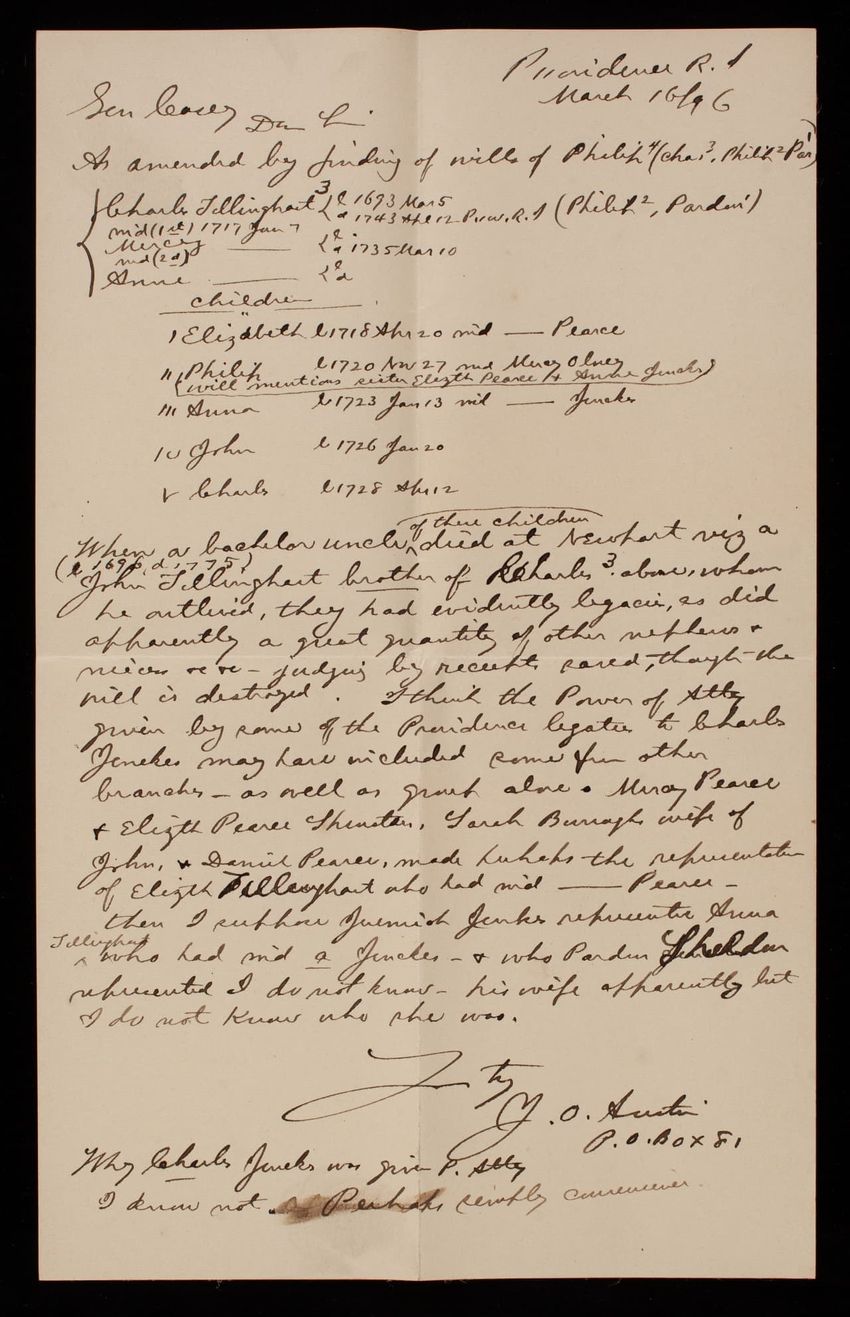 Providence R. I
March 16/96
Gen Casey
Dear Sir
As amended by finding of wills of Philip⁴ (Chas³, Philip² Par¹)
Charles Tillinghast³ { b 1693 Mar 5
d 1743 Apl 12 Prov. R. I (Philip², Pardon¹)
md (1st) 1717 Jan 7
Mercy —— { b
d 1735 Mar 10
md (2d)
Anne —— { b
d
children
I Elizabeth b 1718 Apr 20 md —— Pearce
II Philip b 1720 Nov 27 md Mercy Olney
(will mentions sister Elizth Pearce & Anne Jencks)
III Anna b 1723 Jan 13 md —— Jenckes
IV John b 1726 Jan 20
V Charles b 1728 Apr 12
When a bachelor uncle of these children died at Newport viz a
(b 1690, d. 1775)
John Tillinghast brother of Charles³ above, whom
he outlived, they had evidently legacies, as did
apparently a great quantity of other nephews &
nieces &c &c - judging by receipts saved, though the
will is destroyed. I think the Power of Atty
given by some of the Providence legatees to Charles
Jenckes may have included some from other
branches - as well as group above. Mercy Pearce
& Elizth Pearce Thurston, Sarah Burroughs wife of
John, & Daniel Pearce, made perhaps the representation
of Elizth Tillinghast who had md —— Pearce -
then I suppose Jeremiah Jenkes represented Anna
Tillinghast
who had md a Jenckes - & who Pardon Sheldon
represented I do not know - his wife apparently but
I do not know who she was.
Yrs try
J. O. Austin
P. O. Box 81
Why Charles Jencks was given P. Atty
I know not. Perhaps simply convenience.